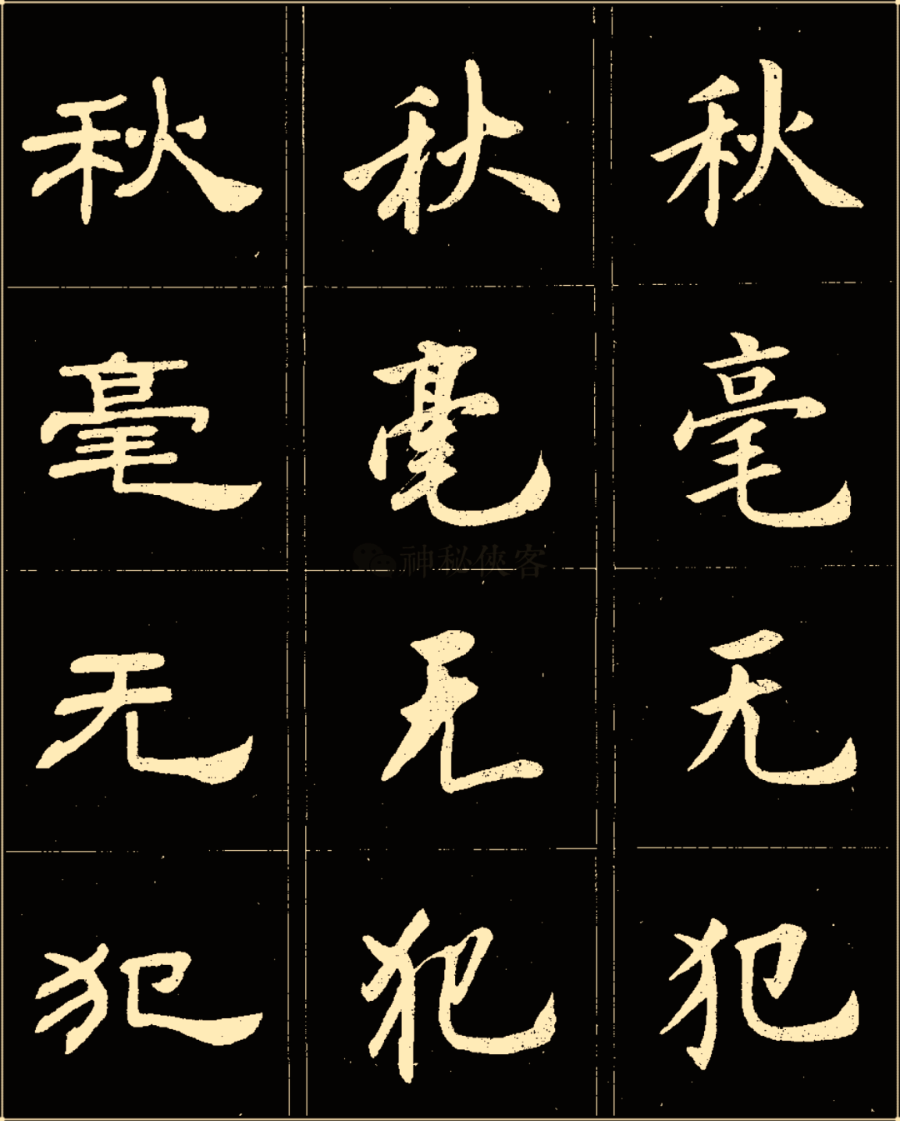 秋 秋 秋
毫 毫 毫
神秘俠客
无 无 无
犯 犯 犯